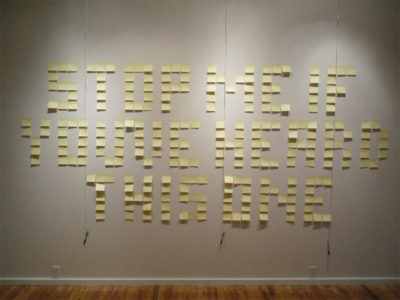 STOP ME IF
YOU'VE HEARD
THIS ONE